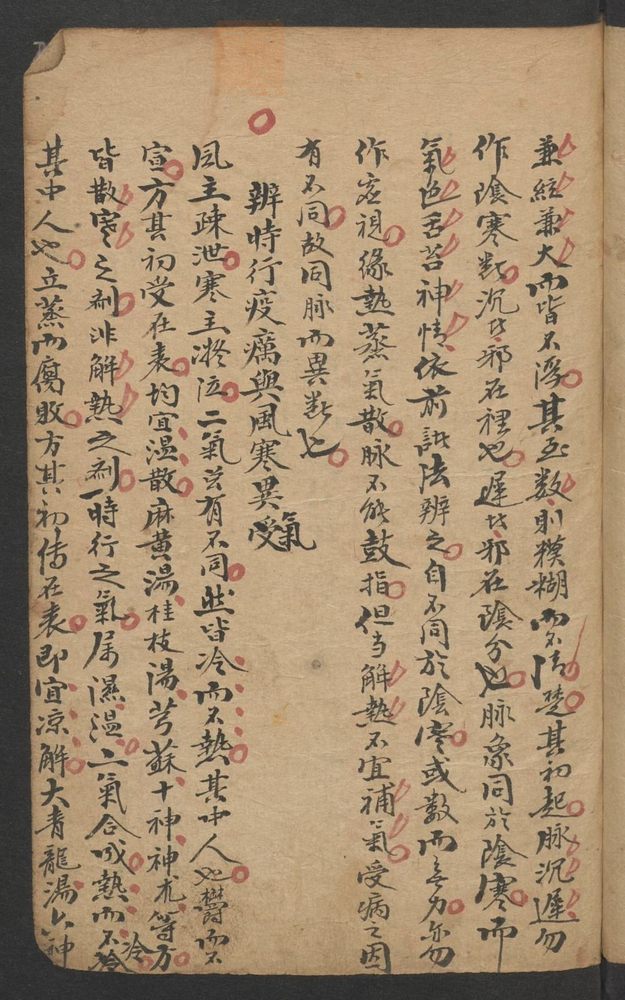 兼絃兼大而皆不浮其至数則模糊而不清楚其初起脉沉遲勿
作陰寒断沉者邪在裡也遲者邪在陰分也脉象同於陰寒而
氣色舌苔神情依前諸法辨之自不同於陰寒或數而無力亦勿
作虚視緣熱蒸氣散脉不能鼓指但当解熱不宜補氣受病之因
有不同故同脉而異断也
辨時行疫癘與風寒異受氣
風主疎泄寒主凝泣二氣岂有不同然皆冷而不熱其中人也欝而不
宣方其初受在表均宜温散麻黄湯桂枝湯芎蘇十神神朮等方
皆散寒之剤非解熱之剤時行之氣属濕温二氣合成熱而不冷
其中人也立蒸而腐敗方其初傳在表即宜凉解大青龍湯六神